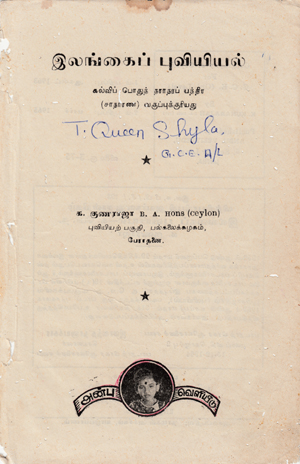 இலங்கைப் புவியியல்
கல்விப் பொதுத் தராதரப் பத்திர
(சாதாரண) வகுப்புக்குரியது
T. Queen Shyla.
G.C.E. A/L
க. குணராஜா B. A. Hons (ceylon)
புவியியற் பகுதி, பல்கலைக்கழகம்,
பேராதனை.
அன்பு வெளியீடு